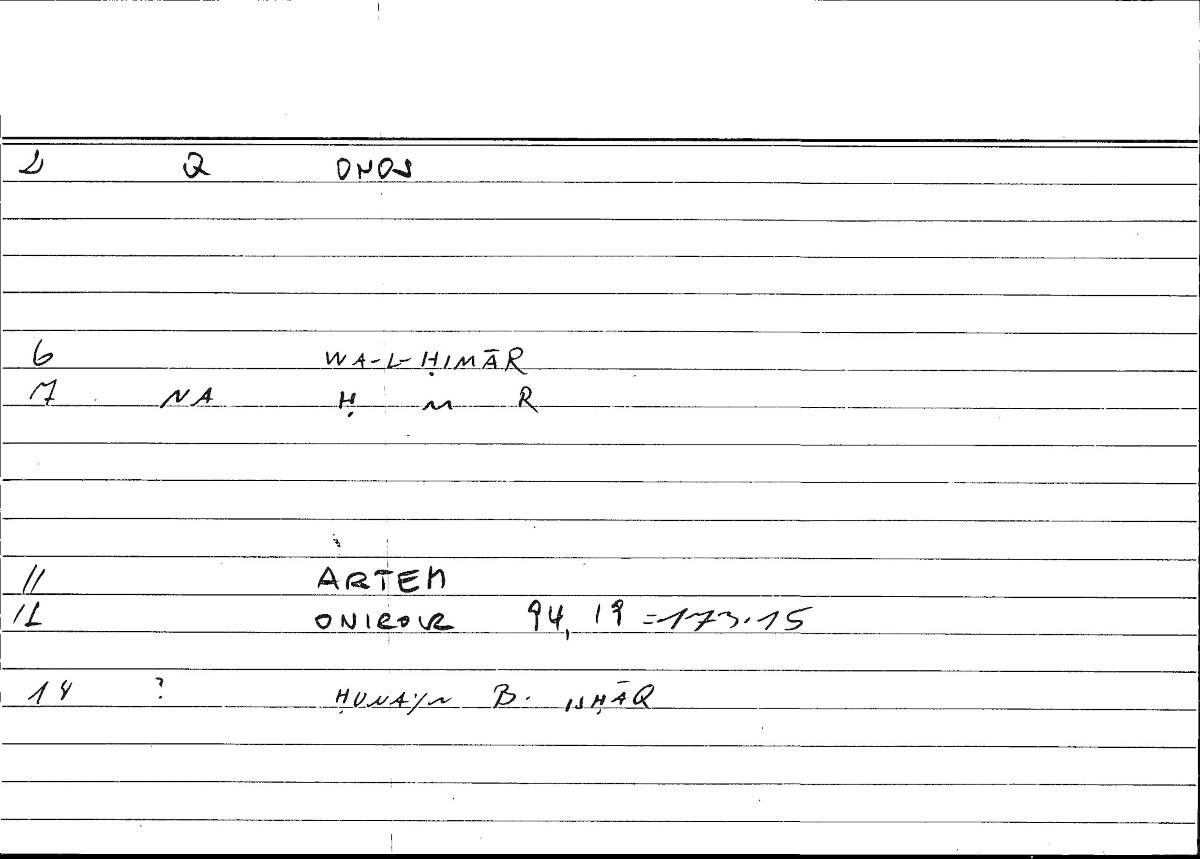 2 Q ONOS
6 WA-L-ḤIMĀR
7 NA Ḥ M R
11 ARTEM
12 ONIROCR 94,19 =173.15
14 ? ḤUNAYN B. ISḤĀQ